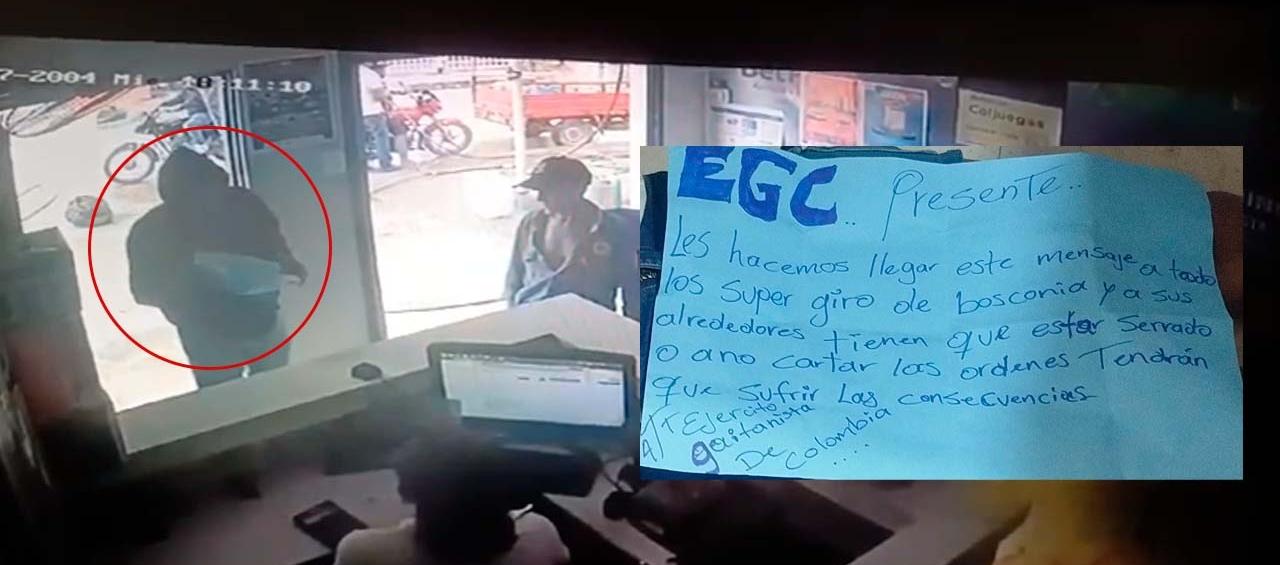 7-2004 Mi. 18:11:10
Coljuegos
EGC.. Presente..
Les hacemos llegar este mensaje a todo
los super giro de bosconia y a sus
alrededores tienen que estar Serrado
o ano cartar las ordenes Tendrán
que sufrir Las consecuencias
ATT Ejercito
gaitanista
De colombia....